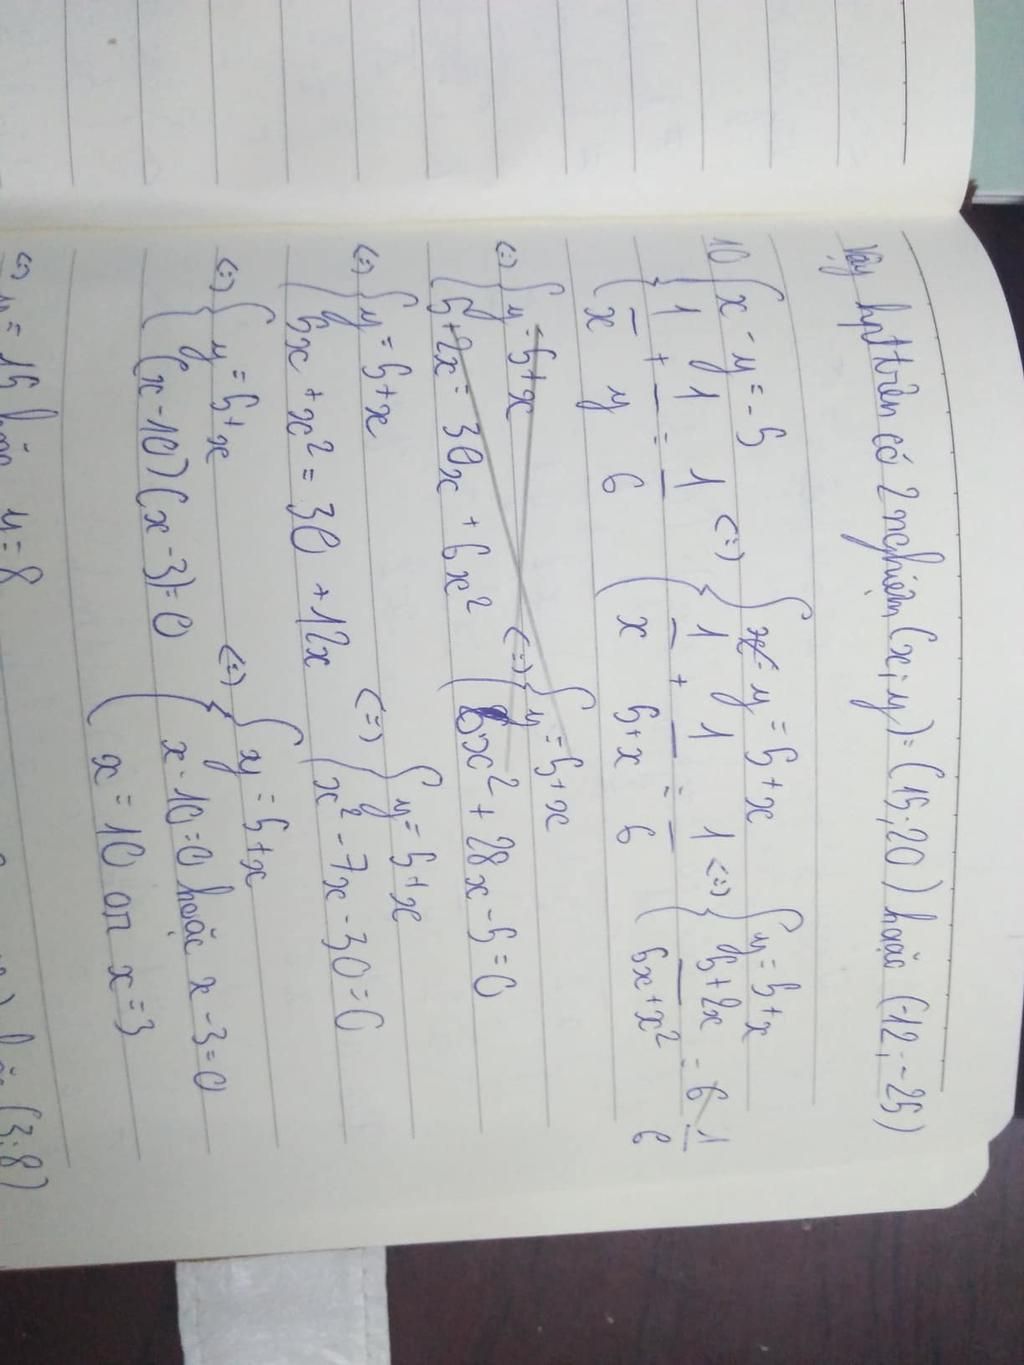 Vậy hpt trên có 2 nghiệm (x; y) = (15; 20) hoặc (-12; -25)
10 { x - y = -5
1/x + 1/y = 1/6
(=) { y = 5 + x
1/x + 1/5+x = 1/6
(=) { y = 5 + x
5+2x/5x+x² = 1/6
(=) { y = 5 + x
5 + 2x = 30x + 6x²
(=) { y = 5 + x
6x² + 28x - 5 = 0
(=) { y = 5 + x
5x + x² = 30 + 12x
(=) { y = 5 + x
x² - 7x - 30 = 0
(=) { y = 5 + x
(x - 10)(x - 3) = 0
(=) { y = 5 + x
x - 10 = 0 hoặc x - 3 = 0
x = 10 x = 3
(=) y = 15 hoặc y = 8
(3; 8)